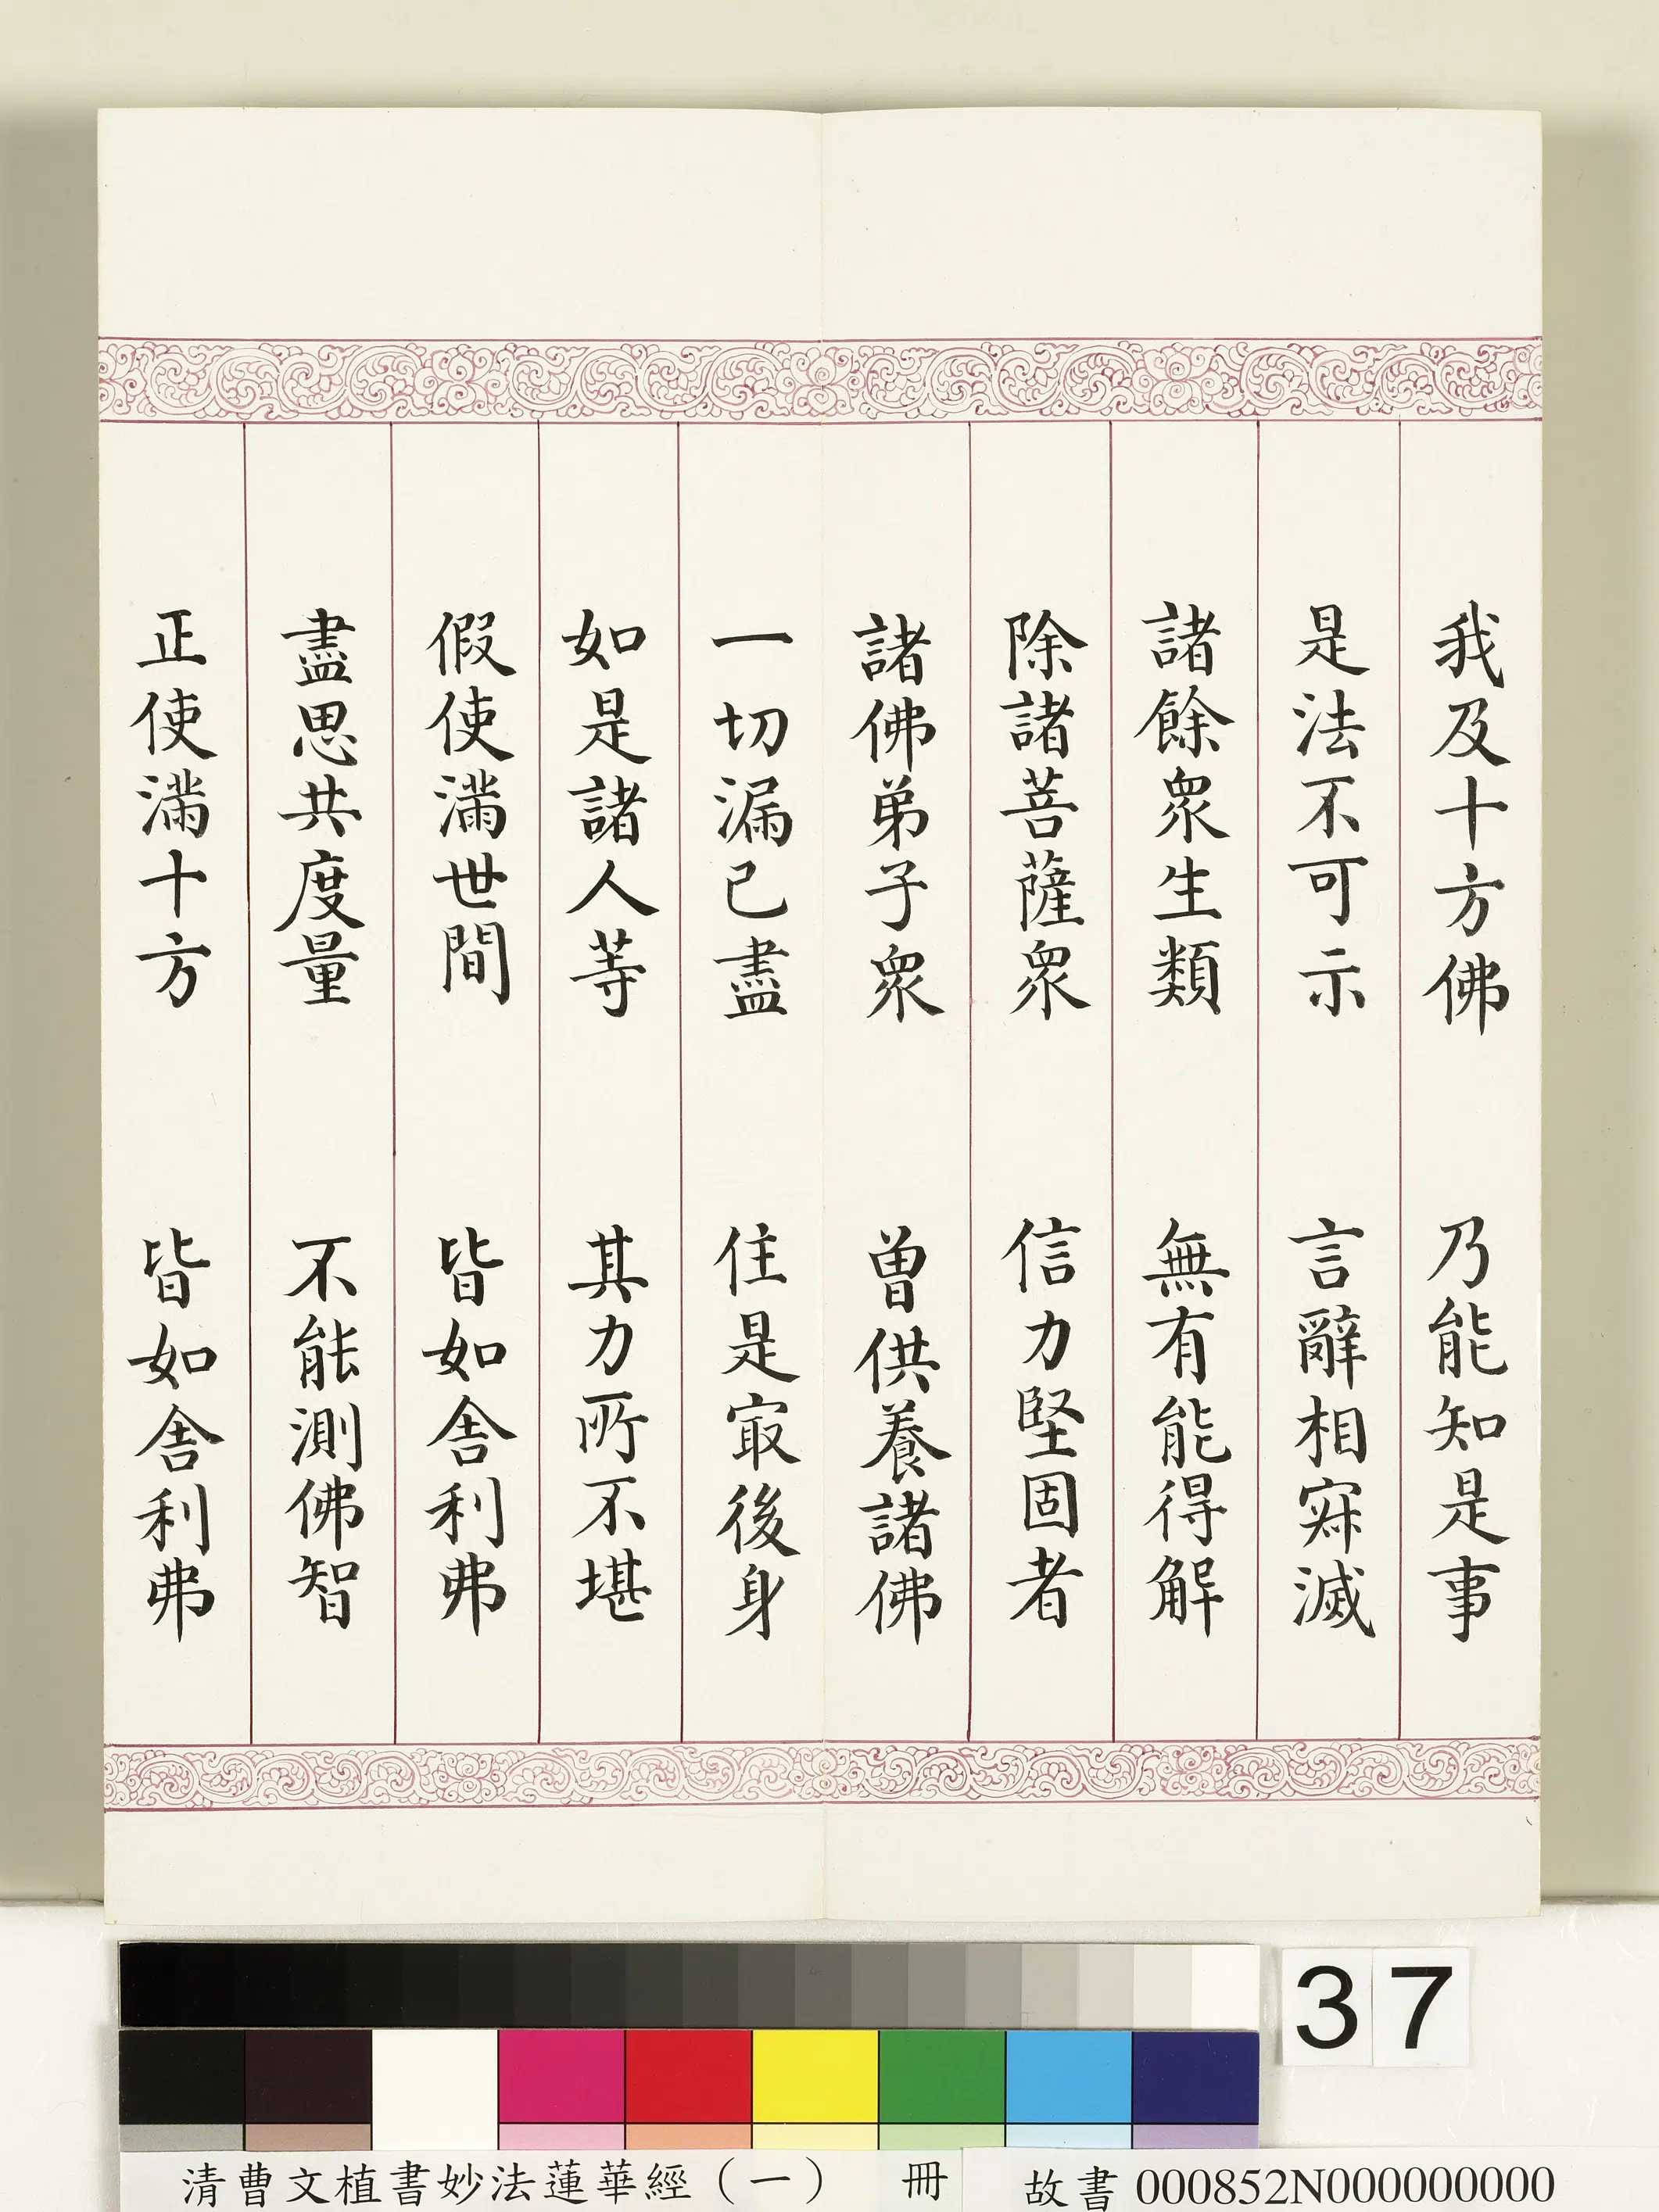 我及十方佛　乃能知是事
是法不可示　言辭相寂滅
諸餘眾生類　無有能得解
除諸菩薩眾　信力堅固者
諸佛弟子眾　曾供養諸佛
一切漏已盡　住是㝡後身
如是諸人等　其力所不堪
假使滿世間　皆如舍利弗
盡思共度量　不能測佛智
正使滿十方　皆如舍利弗
37
清曹文植書妙法蓮華經（一）　冊　故書 000852N000000000